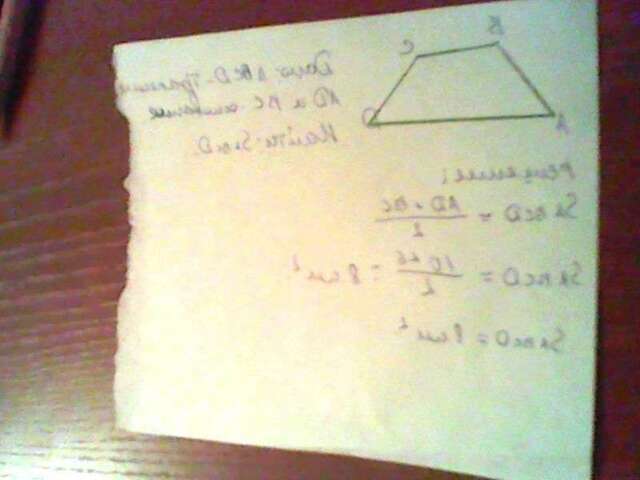 B
C
D
A
Дано: ABCD-трапеция
AD и BC-основание
Найти: SABCD.
Решение:
SABCD = AD + BC / 2
SABCD = 10 + 6 / 2 = 8 см²
SABCD = 8 см²